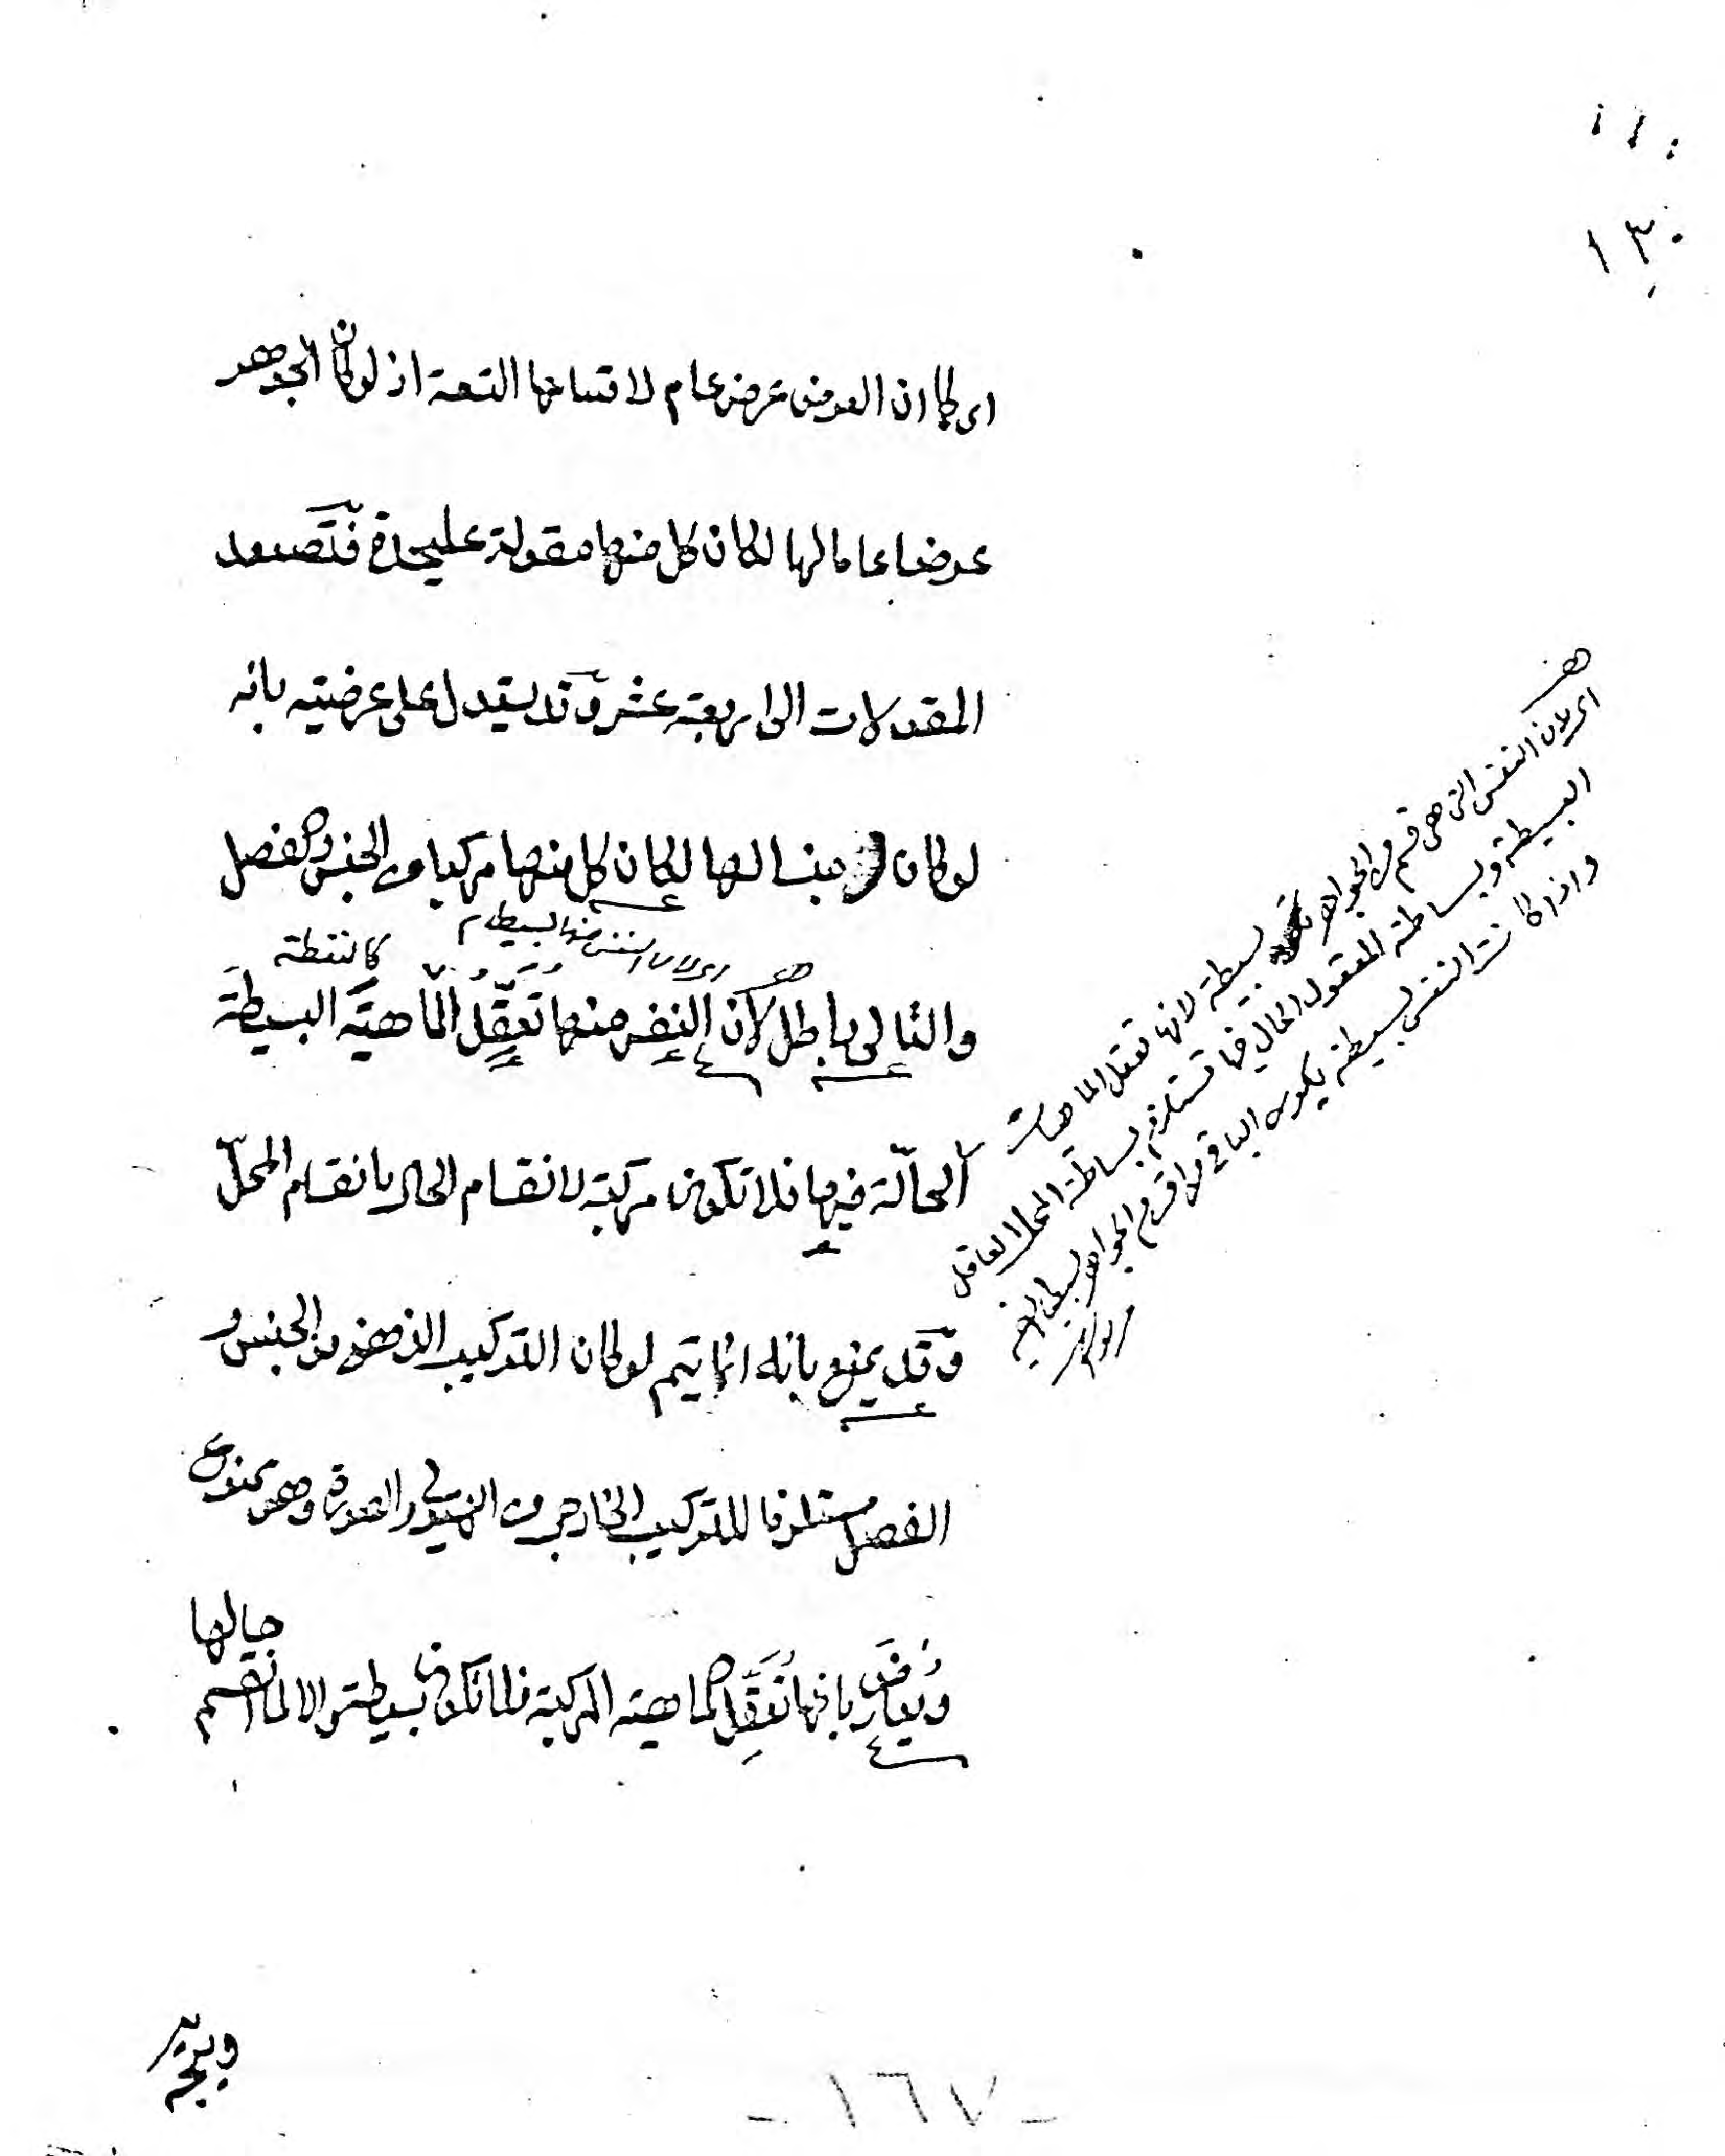 ١٣٠
اى كما ان العرض عرض عام لاقسامها التسعة اذ لو كان الجوهر
عرضا عاما لها لكان كل منها مقولة عليحدة فتصعد
المقولات الى اربعة عشر وقد يستدل على عرضيته بانه
لو كان جنسا لها لكان كل منها مركبا من الجنس والفصل
اى لان النفس منها بسيطة
كالنقطة
والتالى باطل لان النفس منها تعقل الماهية البسيطة
الحالّة فيها فلا تكون مركبة لانقسام الحال بانقسام المحلّ
وقد يمنع بانه انما يتم لو كان التركيب الذهنى من الجنس و
الفصل مستلزما للتركيب الخارجى من الهيولى والصورة وهو ممنوع
ويعارض بانها تعقل الماهية المركبة فلا تكون بسيطة والا لما انقسم
حالها
اى لان النفس التى هى قسم من الجواهر بسيطة لانها تعقل الماهيات
البسيطة وبساطة المعقول الحال فيها تستلزم بساطة المحل العاقل
واذا كانت النفس بسيطة يكون الباقى من اقسام الجواهر بسائط
ويجوز
- ١٦٧ -